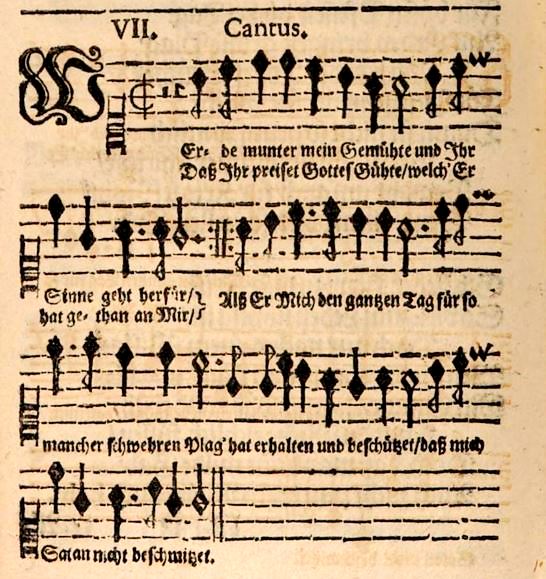 VII. Cantus.
W
Er- de munter mein Gemühte und Ihr
Daß Ihr preiset Gottes Gühte/welch' Er
Sinne geht herfür/ Alß Er Mich den gantzen Tag für so
hat ge- than an Mir/
mancher schwehren Plag' hat erhalten und beschützet/daß mich
Satan nicht beschmitzet.